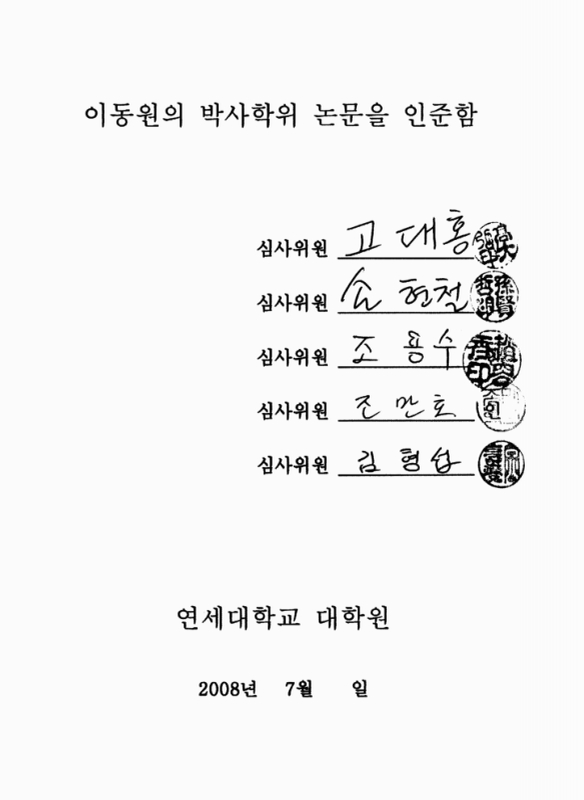 이동원의 박사학위 논문을 인준함
심사위원 고대홍
심사위원 손현철
심사위원 조용수
심사위원 조만호
심사위원 김형섭
연세대학교 대학원
2008년 7월 일